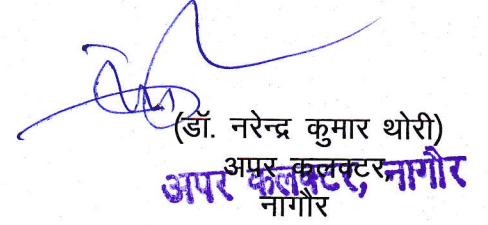 (डॉ. नरेन्द्र कुमार थोरी)
अपर कलक्टर,
अपर कलक्टर, नागौर
नागौर